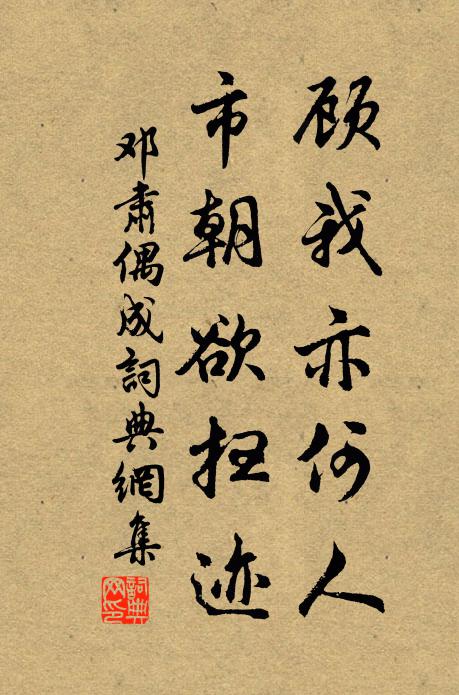 顾我亦何人
市朝欲扫迹
邓肃偶成詞典網集
詞典网印